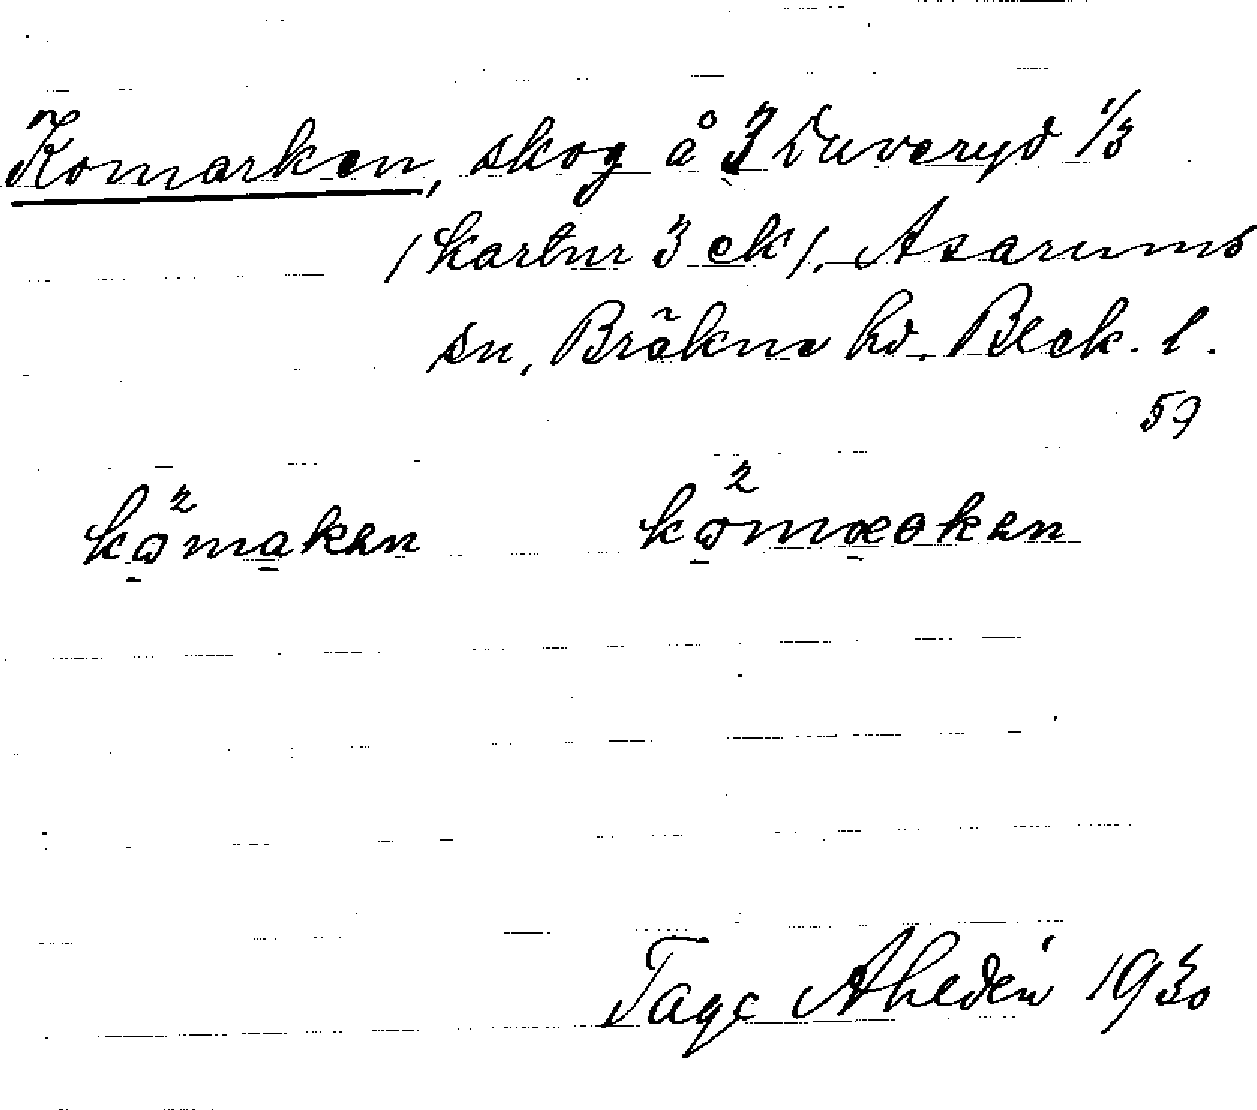 Komarken, skog å 3 Duveryd 1/3
/ kartnr 3 ek /. Asarums
sn, Bräkne hd. Blek. l.
59
kǫ²mąkən kǫ²mąɶkən
Tage Ahldén 1930